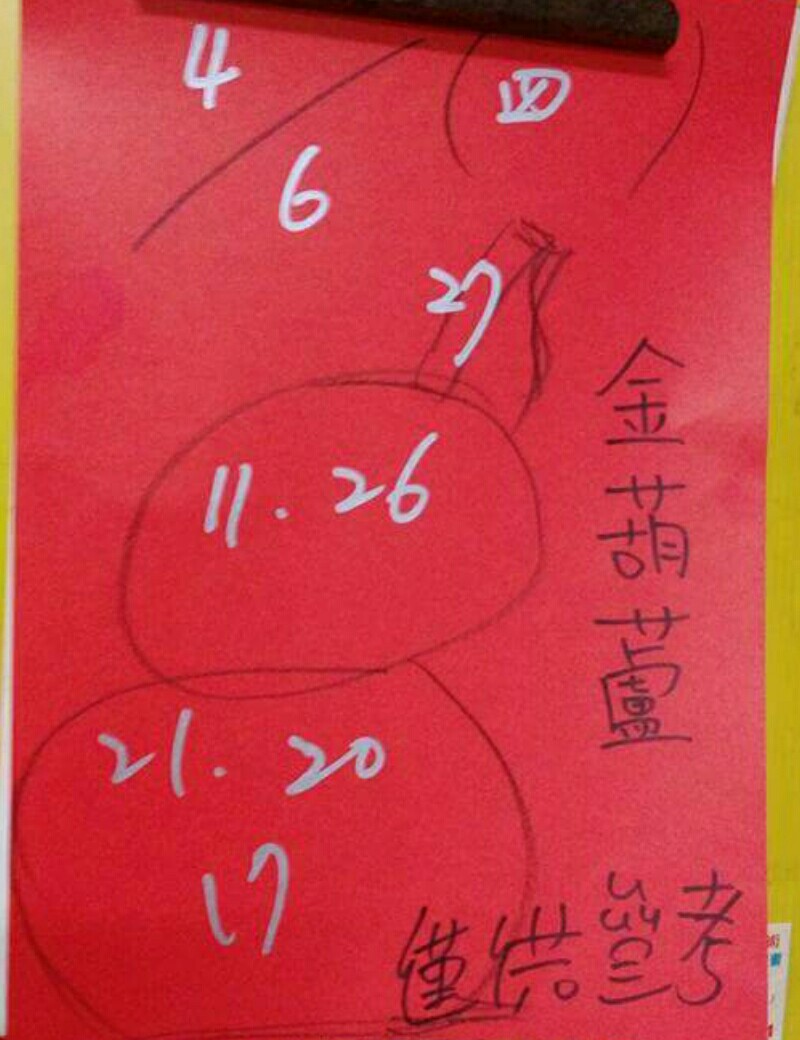 4
6
(四)
27
11.26
21.20
17
金葫蘆
僅供參考